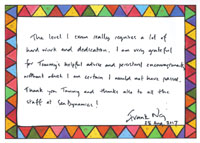 The level 1 exam really requires a lot of
hard work and dedication. I am very grateful
for Tommy's helpful advice and persistent encouragement,
without which I am certain I would not have passed.
Thank you Tommy and thanks also to all the
staff at Sen Dynamics!
Frank Ng
2017